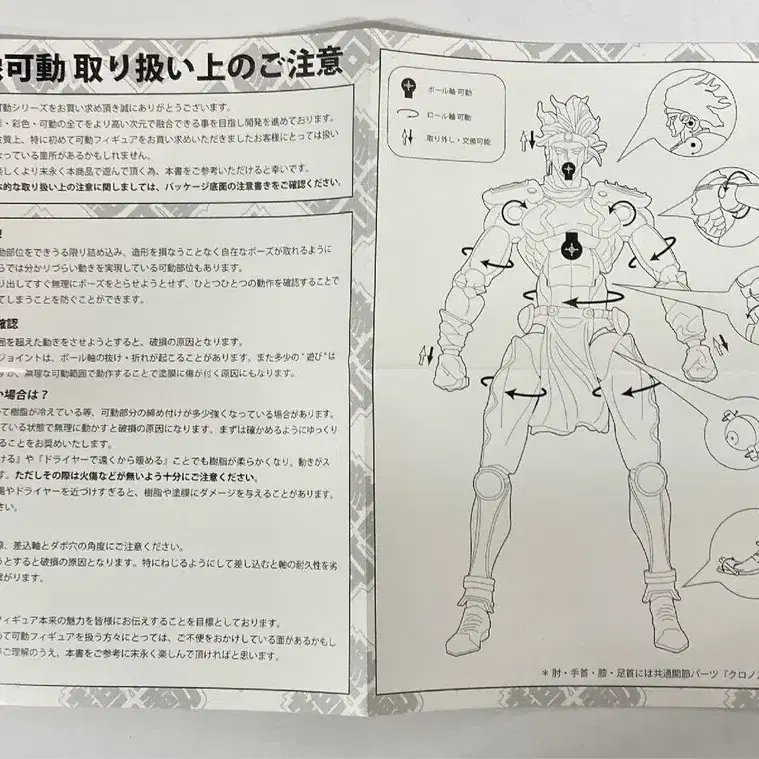 可動 取り扱い上のご注意
可動シリーズをお買い求め頂き誠にありがとうございます。
・彩色・可動の全てをより高い次元で融合できる事を目指し開発を進めております。
性質上、特に初めて可動フィギュアをお買い求めいただきましたお客様にとっては扱い
なっている箇所があるかもしれません。
楽しくより末永く本商品で遊んで頂く為、本書をご参考いただけると幸いです。
的な取り扱い上の注意に関しましては、パッケージ底面の注意書きをご確認ください。
動部位をできうる限り詰め込み、造形を損なうことなく自在なポーズが取れるように
らでは分かりづらい動きを実現している可動部位もあります。
り出してすぐ無理にポーズをとらせようとせず、ひとつひとつの動作を確認することで
てしまうことを防ぐことができます。
確認
囲を超えた動きをさせようとすると、破損の原因となります。
ジョイントは、ボール軸の抜け・折れが起こることがあります。また多少の"遊び"は
すが、無理な可動範囲で動作することで塗膜に傷が付く原因にもなります。
い場合は？
て樹脂が冷えている等、可動部分の締め付けが多少強くなっている場合があります。
ている状態で無理に動かすと破損の原因になります。まずは確かめるようにゆっくり
ることをお奨めいたします。
ける』や『ドライヤーで遠くから暖める』ことでも樹脂が柔らかくなり、動きがス
す。ただしその際は火傷などが無いよう十分にご注意ください。
湯やドライヤーを近づけすぎると、樹脂や塗膜にダメージを与えることがあります。
さい。
際、差込軸とダボ穴の角度にご注意ください。
うとすると破損の原因となります。特にねじるようにして差し込むと軸の耐久性を劣
繋がります。
フィギュア本来の魅力を皆様にお伝えすることを目標としております。
めて可動フィギュアを扱う方々にとっては、ご不便をおかけしている面があるかもし
ご理解のうえ、本書をご参考に末永く楽しんで頂ければと思います。
ボール軸 可動
ロール軸 可動
取り外し・交換可能
＊肘・手首・膝・足首には共通関節パーツ『クロノ